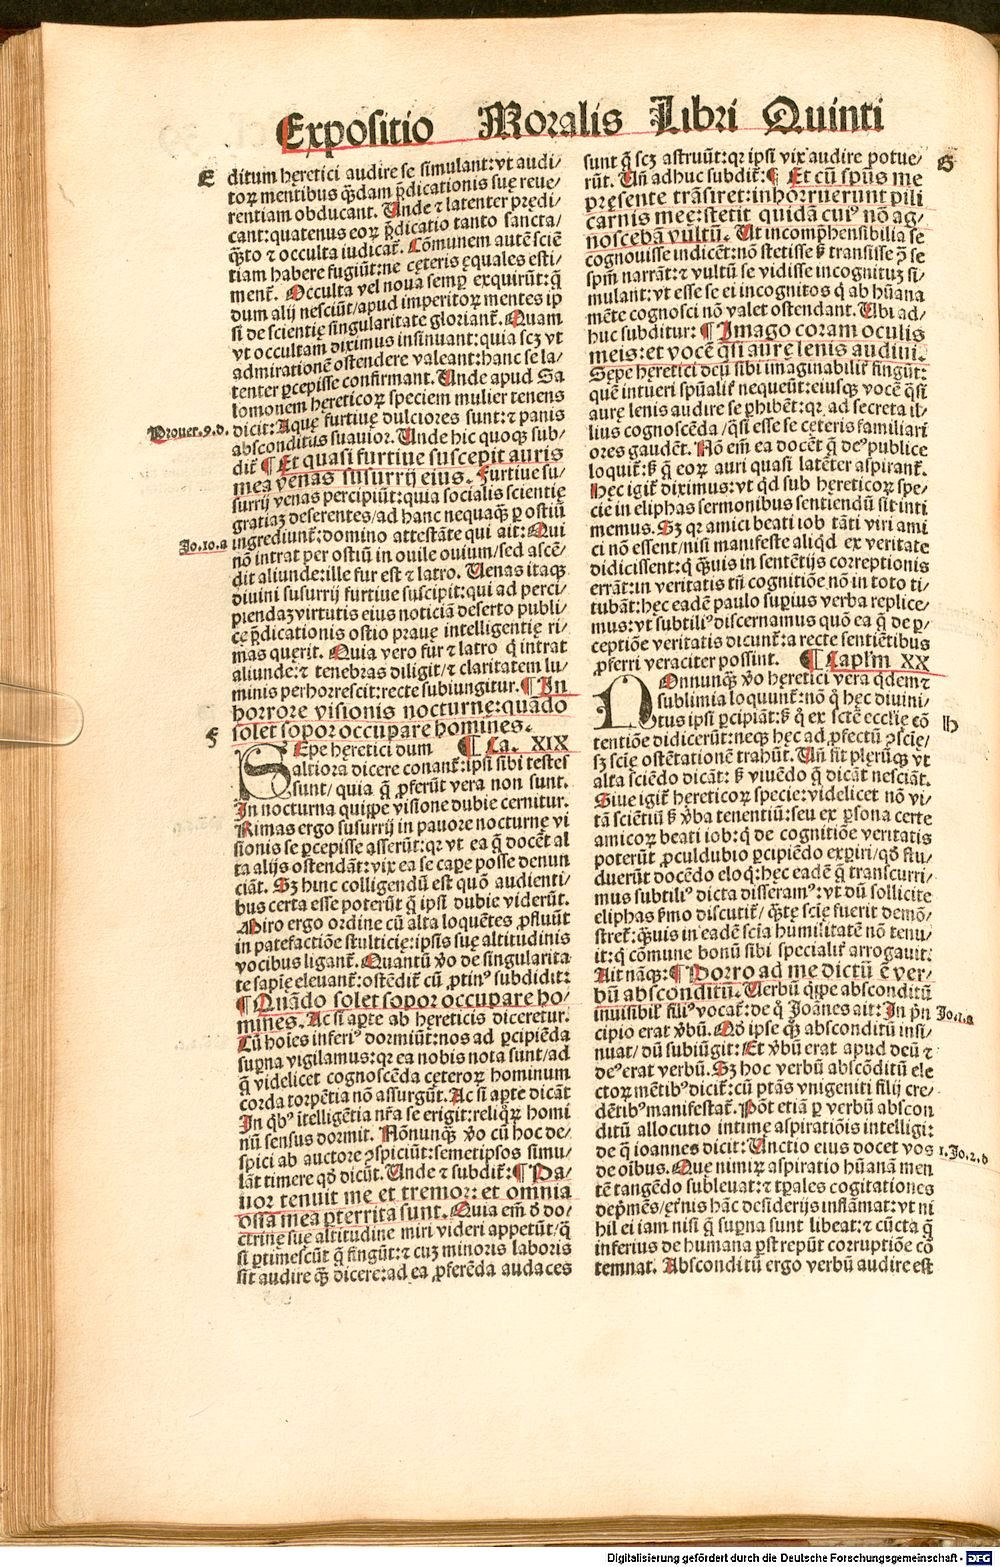 Expositio Moralis Libri Quinti
E
ditum hęretici audire se simulant: vt audi/
torꝝ mentibus q̄dam p̄dicationis suę reue/
rentiam obducant. Unde ⁊ latenter prędi/
cant: quatenus eorꝝ p̄dicatio tanto sancta/
q̄ꝫto ⁊ occulta iudicat᷒. Cōmunem autē sciē
tiam habere fugiūt: ne cęteris ęquales esti/
ment᷒. Occulta vel noua semꝑ exquirūt: q̄
dum alij nesciūt/apud imperitorꝝ mentes ip
si de scientię singularitate gloriant᷒. Quam
vt occultam diximus insinuant: quia scꝫ vt
admirationē ostendere valeant: hanc se la/
tenter ꝑcepisse confirmant. Unde apud Sa
lomonem hęreticorꝝ speciem mulier tenens
Prouer. 9. d.
dicit: Aquę furtiuę dulciores sunt: ⁊ panis
absconditus suauior. Unde hic quoqꝫ sub/
dit᷒ ¶ Et quasi furtiue suscepit auris
mea venas susurrij eius. Furtiue su/
surrij venas percipiūt: quia socialis scientię
gratiaꝫ deserentes/ad hanc nequaq̄ꝫ ꝑ ostiū
Jo. 10. a
ingrediunt᷒: domino attestāte qui ait: Qui
nō intrat per ostiū in ouile ouium/sed ascē/
dit aliunde: ille fur est ⁊ latro. Uenas itaqꝫ
diuini susurrij furtiue suscipit: qui ad perci/
piendaꝫ virtutis eius noticiā deserto publi/
cę p̄dicationis ostio prauę intelligentię ri/
mas querit. Quia vero fur ⁊ latro q̇ intrat
aliunde: ⁊ tenebras diligit/⁊ claritatem lu/
minis perhorrescit: recte subiungitur. ¶ In
horrore visionis nocturnę: quādo
solet sopor occupare homines.
F
Sępe hęretici dum ¶ Ca. XIX
altiora dicere conant᷒: ipsi sibi testes
sunt/quia q̄ ꝓferūt vera non sunt.
In nocturna quippe visione dubie cernitur.
Rimas ergo susurrij in pauore nocturnę vi
sionis se ꝑcepisse asserūt: qꝛ vt ea q̄ docēt al
ta alijs ostendāt: vix ea se caꝑe posse denun
ciāt. Sꝫ hinc colligendū est quō audienti/
bus certa esse poterūt q̄ ipsi dubie viderūt.
Miro ergo ordine cū alta loquētes ꝓfluūt
in patefactiōe stulticię: ipsis suę altitudinis
vocibus ligant᷒. Quantū v̊o de singularita
te sapię eleuant᷒: ostēdit᷒ cū ꝓtinꝰ subdidit:
¶ Quādo solet sopor occupare ho/
mines. Ac si aꝑte ab hęreticis diceretur.
Cū hoīes inferiꝰ dormiūt: nos ad ꝑcipiēda
suꝑna vigilamus: qꝛ ea nobis nota sunt/ad
q̄ videlicet cognoscēda cęterorꝝ hominum
corda torpētia nō assurgūt. Ac si aꝑte dicāt
In q̇bꝰ ītelligētia nr̄a se erigit: reliq̇rꝝ homi
nū sensus dormit. Nōnunq̄ꝫ v̊o cū hoc de/
spici ab auctore ꝯspiciūt: semetipsos simu/
lāt timere qd̓ dicūt. Unde ⁊ subdit᷒: ¶ Pa/
uor tenuit me et tremor: et omnia
ossa mea ꝑterrita sunt. Quia em̄ ᵭ do/
ctrinę suę altitudine miri videri appetūt/q̄
si ꝑtimescūt q̄ fingūt: ⁊ cuꝫ minoris laboris
sit audire q̄ꝫ dicere: ad ea ꝓferēda audaces
sunt q̄ scꝫ astruūt: qꝛ ipsi vix audire potue/
G
rūt. Uñ adhuc subdit᷒: ¶ Et cū spūs me
pręsente trāsiret: inhorruerunt pili
carnis mee: stetit quidā cuiꝰ nō ag/
noscebā vultū. Ut incomp̄hensibilia se
cognouisse indicēt: nō stetisse ꝫ transisse ꝑ se
spm̄ narrāt: ⁊ vultū se vidisse incognituꝫ si/
mulant: vt esse se ei incognitos q̇ ab hūana
mēte cognosci nō valet ostendant. Ubi ad/
huc subditur: ¶ Imago coram oculis
meis: et vocē q̄si aurę lenis audiui.
Sępe hęretici deū sibi imaginabilit᷒ fingūt:
quē intueri spūalit᷒ nequeūt: eiusqꝫ vocē q̄si
aurę lenis audire se ꝑhibēt: qꝛ ad secreta il/
lius cognoscēda/q̄si esse se cęteris familiari
ores gaudēt. Nō em̄ ea docēt q̄ deꝰ publice
loquit᷒: ꝫ q̄ eorꝝ auri quasi latēter aspirant᷒.
Hęc igit᷒ diximus: vt qd̓ sub hęreticorꝝ spe/
cie in eliphas sermonibus sentiendū sit inti
memus. Sꝫ qꝛ amici beati iob tāti viri ami
ci nō essent/nisi manifeste aliqd̓ ex veritate
didicissent: q̇ q̄ꝫuis in sentētijs correptionis
errāt: in veritatis tn̄ cognitiōe nō in toto ti/
tubāt: hęc eadē paulo suꝑius verba replice/
mus: vt subtiliꝰ discernamus quō ea q̄ de ꝑ/
ceptiōe veritatis dicunt᷒: a recte sentiētibus
ꝓferri veraciter possint. ¶ Capl̓m XX
NOnnunq̄ꝫ v̊o hęretici vera q̇dem ⁊
sublimia loquunt᷒: nō q̇ hęc diuini/
h
tus ipsi ꝑcipiāt: ꝫ q̇ ex sct̄e eccl̓ie cō
tentiōe didicerūt: neqꝫ hęc ad ꝓfectū ꝯscię/
sꝫ scię ostētationē trahūt. Uñ fit plęrūqꝫ vt
alta sciēdo dicāt: ꝫ viuēdo q̄ dicāt nesciāt.
Siue igit᷒ hęreticorꝝ specie: videlicet nō vi/
tā sciētiū ꝫ v̓ba tenentiū: seu ex ꝑsona certe
amicorꝝ beati iob: q̇ de cognitiōe veritatis
poterūt ꝓculdubio ꝑcipiēdo exꝑiri/qd̓ stu/
duerūt docēdo eloq̇: hęc eadē q̄ transcurri/
mus subtiliꝰ dicta disseramꝰ: vt dū sollicite
eliphas ẜmo discutit᷒/q̄ꝫtę scię fuerit demō/
stret᷒: q̄ꝫuis in eadē scīa humilitatē nō tenu/
it: q̇ cōmune bonū sibi specialit᷒ arrogauit.
Ait nāqꝫ: ¶ Porro ad me dictū ē ver/
bū absconditū. Uerbū q̇ppe absconditū
inuisibilis fili᷒ vocat᷒: de q̊ Joānes ait: In prī
Jo. 1. a
cipio erat v̓bū. Qd̓ ipse q̄ꝫ absconditū insi/
nuat/dū subiūgit: Et v̓bū erat apud deū ⁊
deꝰ erat verbū. Sꝫ hoc verbū abscōditū ele
ctorꝝ mētibꝰ dicit᷒: cū ptās vnigeniti filij cre/
dētibꝰ manifestat᷒. Pōt etiā ꝑ verbū abscon
ditū allocutio intimę aspiratiōis intelligi:
de q̄ ioannes dicit: Unctio eius docet vos
1. Jo. 2. d
de oībus. Que nimirꝝ aspiratio hūanā men
tē tangēdo subleuat: ⁊ tꝑales cogitationes
dep̄mēs/ęt̓nis hāc desiderijs inflāmat: vt ni
hil ei iam nisi q̄ suꝑna sunt libeat: ⁊ cūcta q̄
inferius de humana ꝑstrepūt corruptiōe cō
temnat. Absconditū ergo verbū audire est
Digitalisierung gefördert durch die Deutsche Forschungsgemeinschaft - DFG